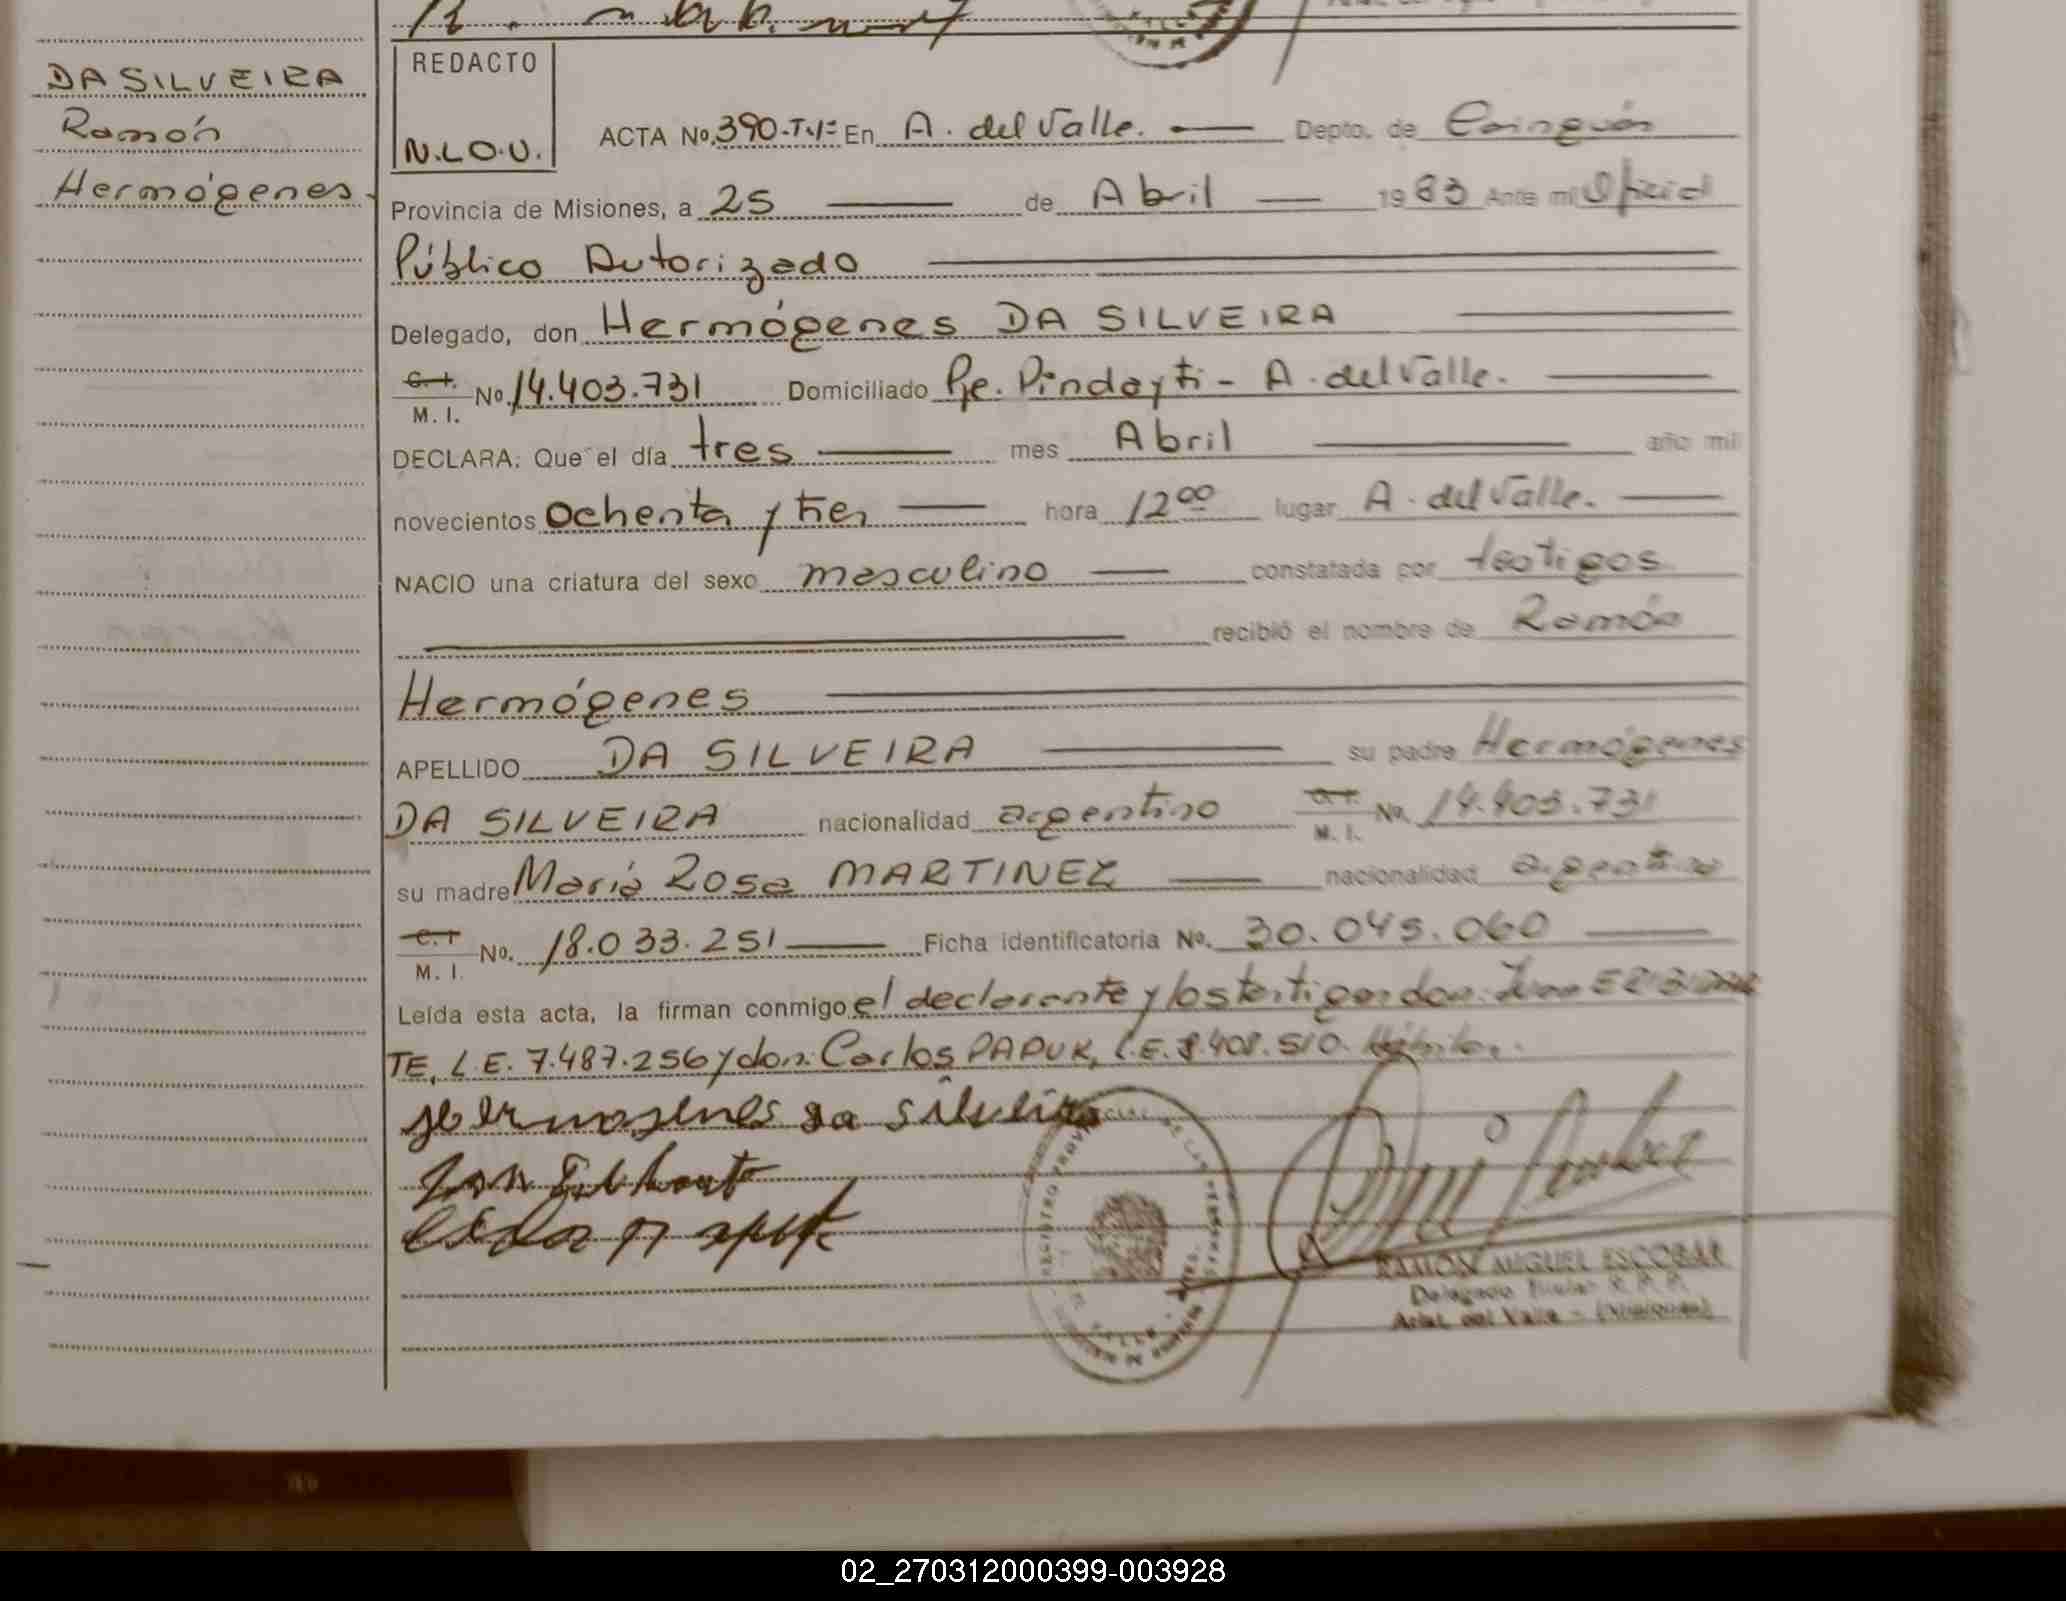 DA SILVEIRA
Ramón
Hermógenes.
REDACTO
N.L.O.U.
ACTA No. 390-T.I= En A. del Valle. Depto. de Cainguás
Provincia de Misiones, a 25 de Abril 1983 Ante mi Oficial
Público Autorizado
Delegado, don Hermógenes DA SILVEIRA
C. I. M. I. No. 14.403.731 Domiciliado Pje. Pindayti - A. del Valle.
DECLARA: Que el día tres mes Abril año mil
novecientos ochenta y tres hora 12°° lugar A. del Valle.
NACIO una criatura del sexo masculino constatada por testigos
recibió el nombre de Ramón
Hermógenes
APELLIDO DA SILVEIRA su padre Hermógenes
DA SILVEIRA nacionalidad argentino C. I. M. I. No. 14.403.731
su madre María Rosa MARTINEZ nacionalidad argentina
C. I. M. I. No. 18.033.251 Ficha identificatoria No. 30.045.060
Leída esta acta, la firman conmigo el declarante y los testigos don: Juan
TE, L.E. 7.487.256 y don: Carlos PAPUK, L.E. 8.408.510.
Hermogenes da Silveira
RAMON MIGUEL ESCOBAR
Delegado Titular R. P. P.
Arist. del Valle - (Misiones)
02_270312000399-003928